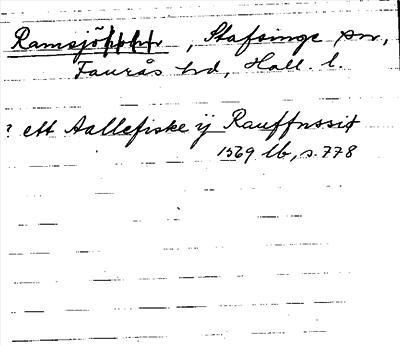 Ramsjö , Stafsinge sn,
Faurås hd, Hall. l.
? ett Aallefiske ÿ Rauffnssiø
1569 lb, s. 778